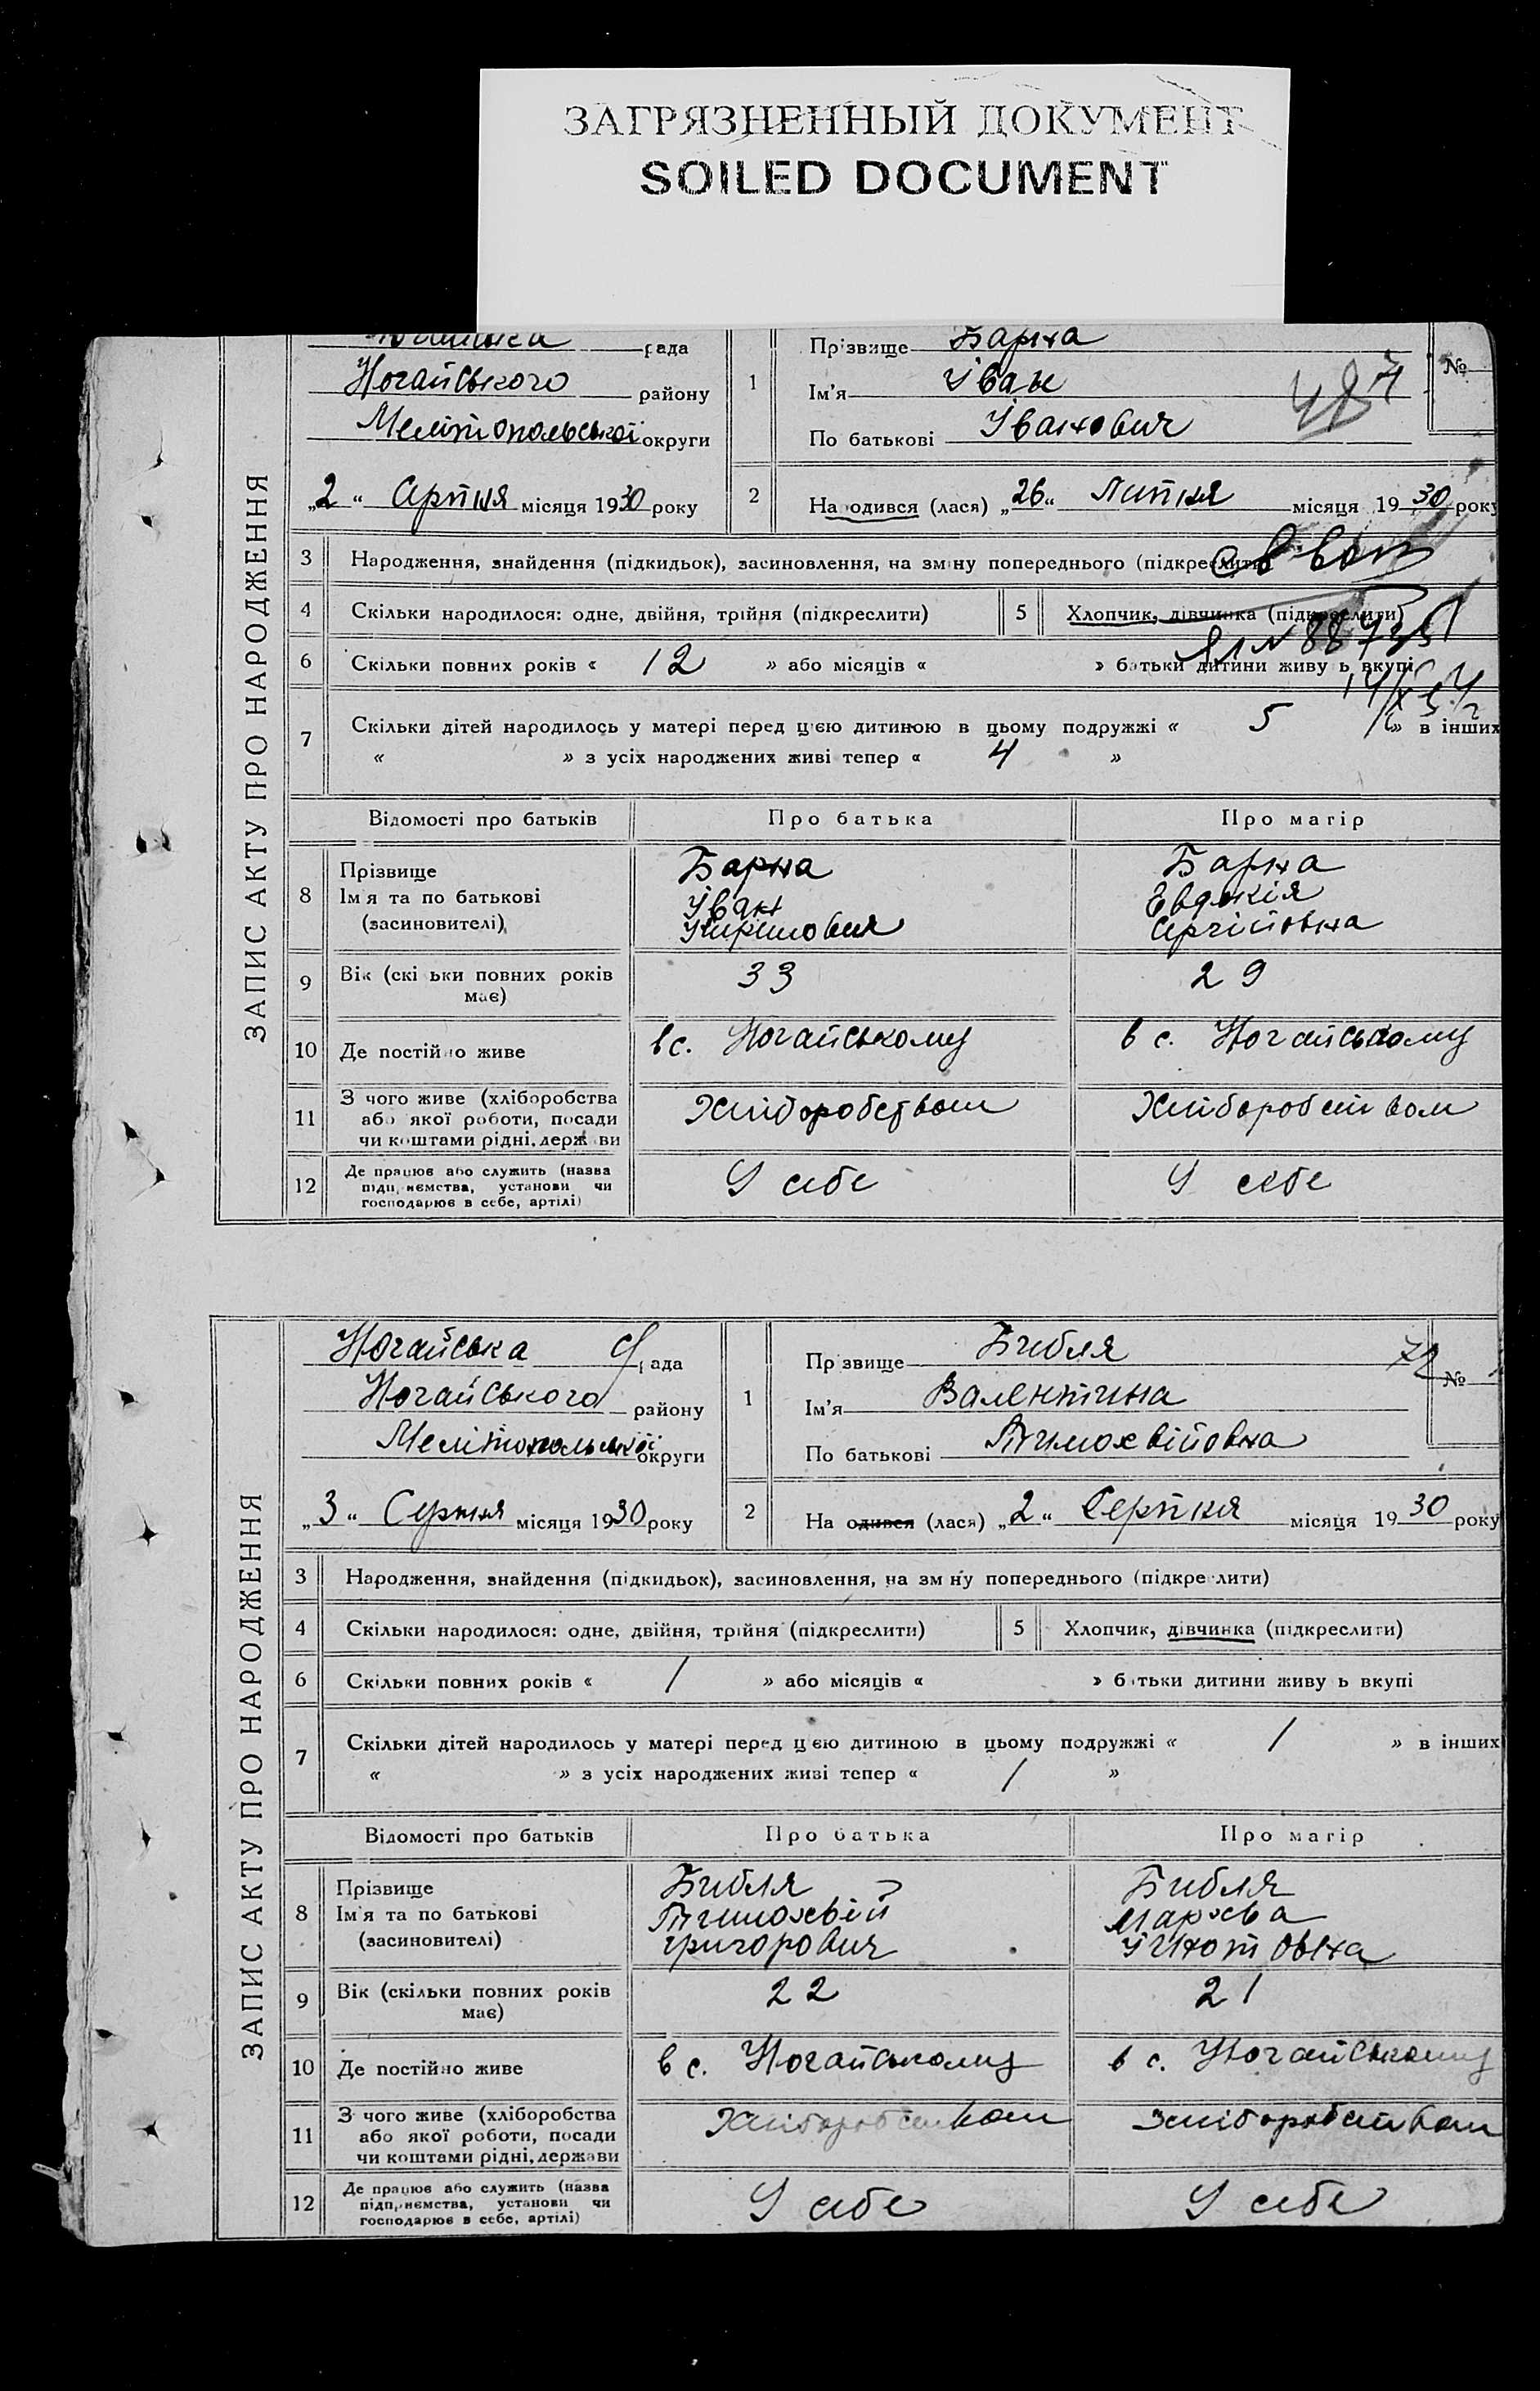 ЗАГРЯЗНЕННЫЙ ДОКУМЕНТ
SOILED DOCUMENT
ЗАПИС АКТУ ПРО НАРОДЖЕННЯ
рада
Ногайського району
Мелітопольської округи
„2“ Серпня місяця 1930 року
1
Прізвище Барна
Ім'я Іван
По батькові Іванович
№
2 Народився (лася) „26“ Липня місяця 1930 року
3 Народження, знайдення (підкидьок), засиновлення, на зміну попереднього (підкреслити)
4 Скільки народилося: одне, двійня, трійня (підкреслити)
5 Хлопчик, дівчинка (підкреслити)
6 Скільки повних років « 12 » або місяців « » батьки дитини живу ь вкупі
7 Скільки дітей народилось у матері перед цією дитиною в цьому подружжі « 5 » в інших
« » з усіх народжених живі тепер « 4 »
Відомості про батьків Про батька Про матір
8 Прізвище Барна Барна
Ім'я та по батькові Іван Евдокія
(засиновителі) Сергіївна
9 Вік (скі ьки повних років має) 33 29
10 Де постійно живе в с. Ногайському в с. Ногайському
11 З чого живе (хліборобства
або якої роботи, посади
чи коштами рідні, держави Хліборобством Хліборобством
12 Де працює або служить (назва
підприємства, установи чи
господарює в себе, артілі) У себе У себе
ЗАПИС АКТУ ПРО НАРОДЖЕННЯ
Ногайська с/рада
Ногайського району
Мелітопольської округи
„3“ Серпня місяця 1930 року
1
Прізвище Библя
Ім'я Валентина
По батькові Тимохвійовна
72
№
2 На одився (лася) „2“ Серпня місяця 1930 року
3 Народження, знайдення (підкидьок), засиновлення, на зміну попереднього (підкреслити)
4 Скільки народилося: одне, двійня, трійня (підкреслити)
5 Хлопчик, дівчинка (підкреслити)
6 Скільки повних років « 1 » або місяців « » батьки дитини живу ь вкупі
7 Скільки дітей народилось у матері перед цією дитиною в цьому подружжі « 1 » в інших
« » з усіх народжених живі тепер « 1 »
Відомості про батьків Про батька Про матір
8 Прізвище Библя Библя
Ім'я та по батькові Тимохвій Мархва
(засиновителі) Григорович Ігнатовна
9 Вік (скільки повних років має) 22 21
10 Де постійно живе в с. Ногайському в с. Ногайському
11 З чого живе (хліборобства
або якої роботи, посади
чи коштами рідні, держави Хліборобством Хліборобством
12 Де працює або служить (назва
підприємства, установи чи
господарює в себе, артілі) У себе У себе